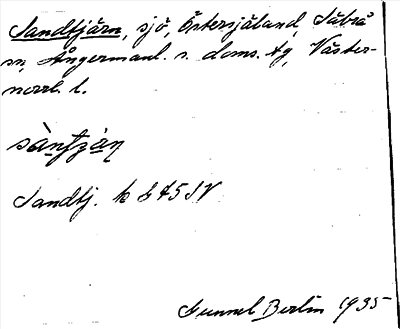 Sandtjärn, sjö, Östersjäland, Säbrå
sn, Ångermanl. s. doms. tg, Väster-
norrl. l.
Sandtj. k E 45 SV
Gunnel Berlin 1935